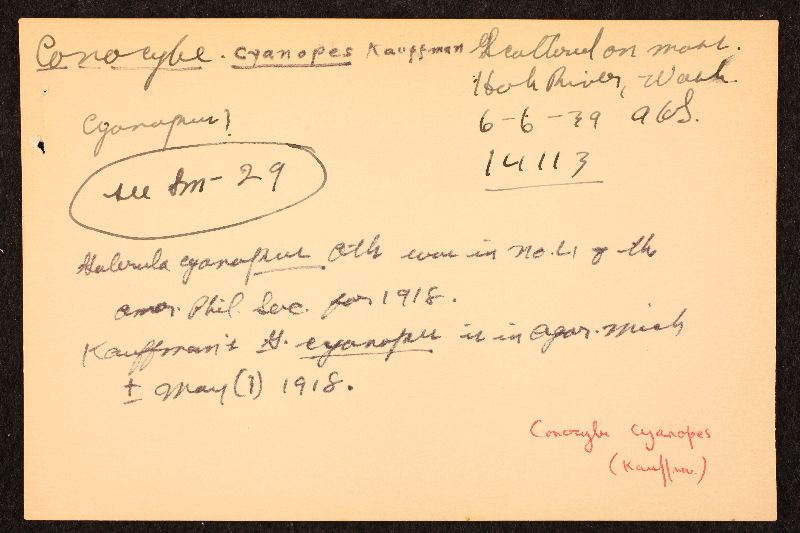 Conocybe. cyanopes Kauffman
Scattered on moss.
Hoh River, Wash
6-6-39 AHS.
14113
cyanopus?
see Sm- 29
Galerula cyanopus Atk was in no. 4 of the
Amer. Phil. Soc. for 1918.
Kauffman's G. cyanopes is in Agar. Mich
± May (?) 1918.
Conocybe cyanopes
(Kauffman)